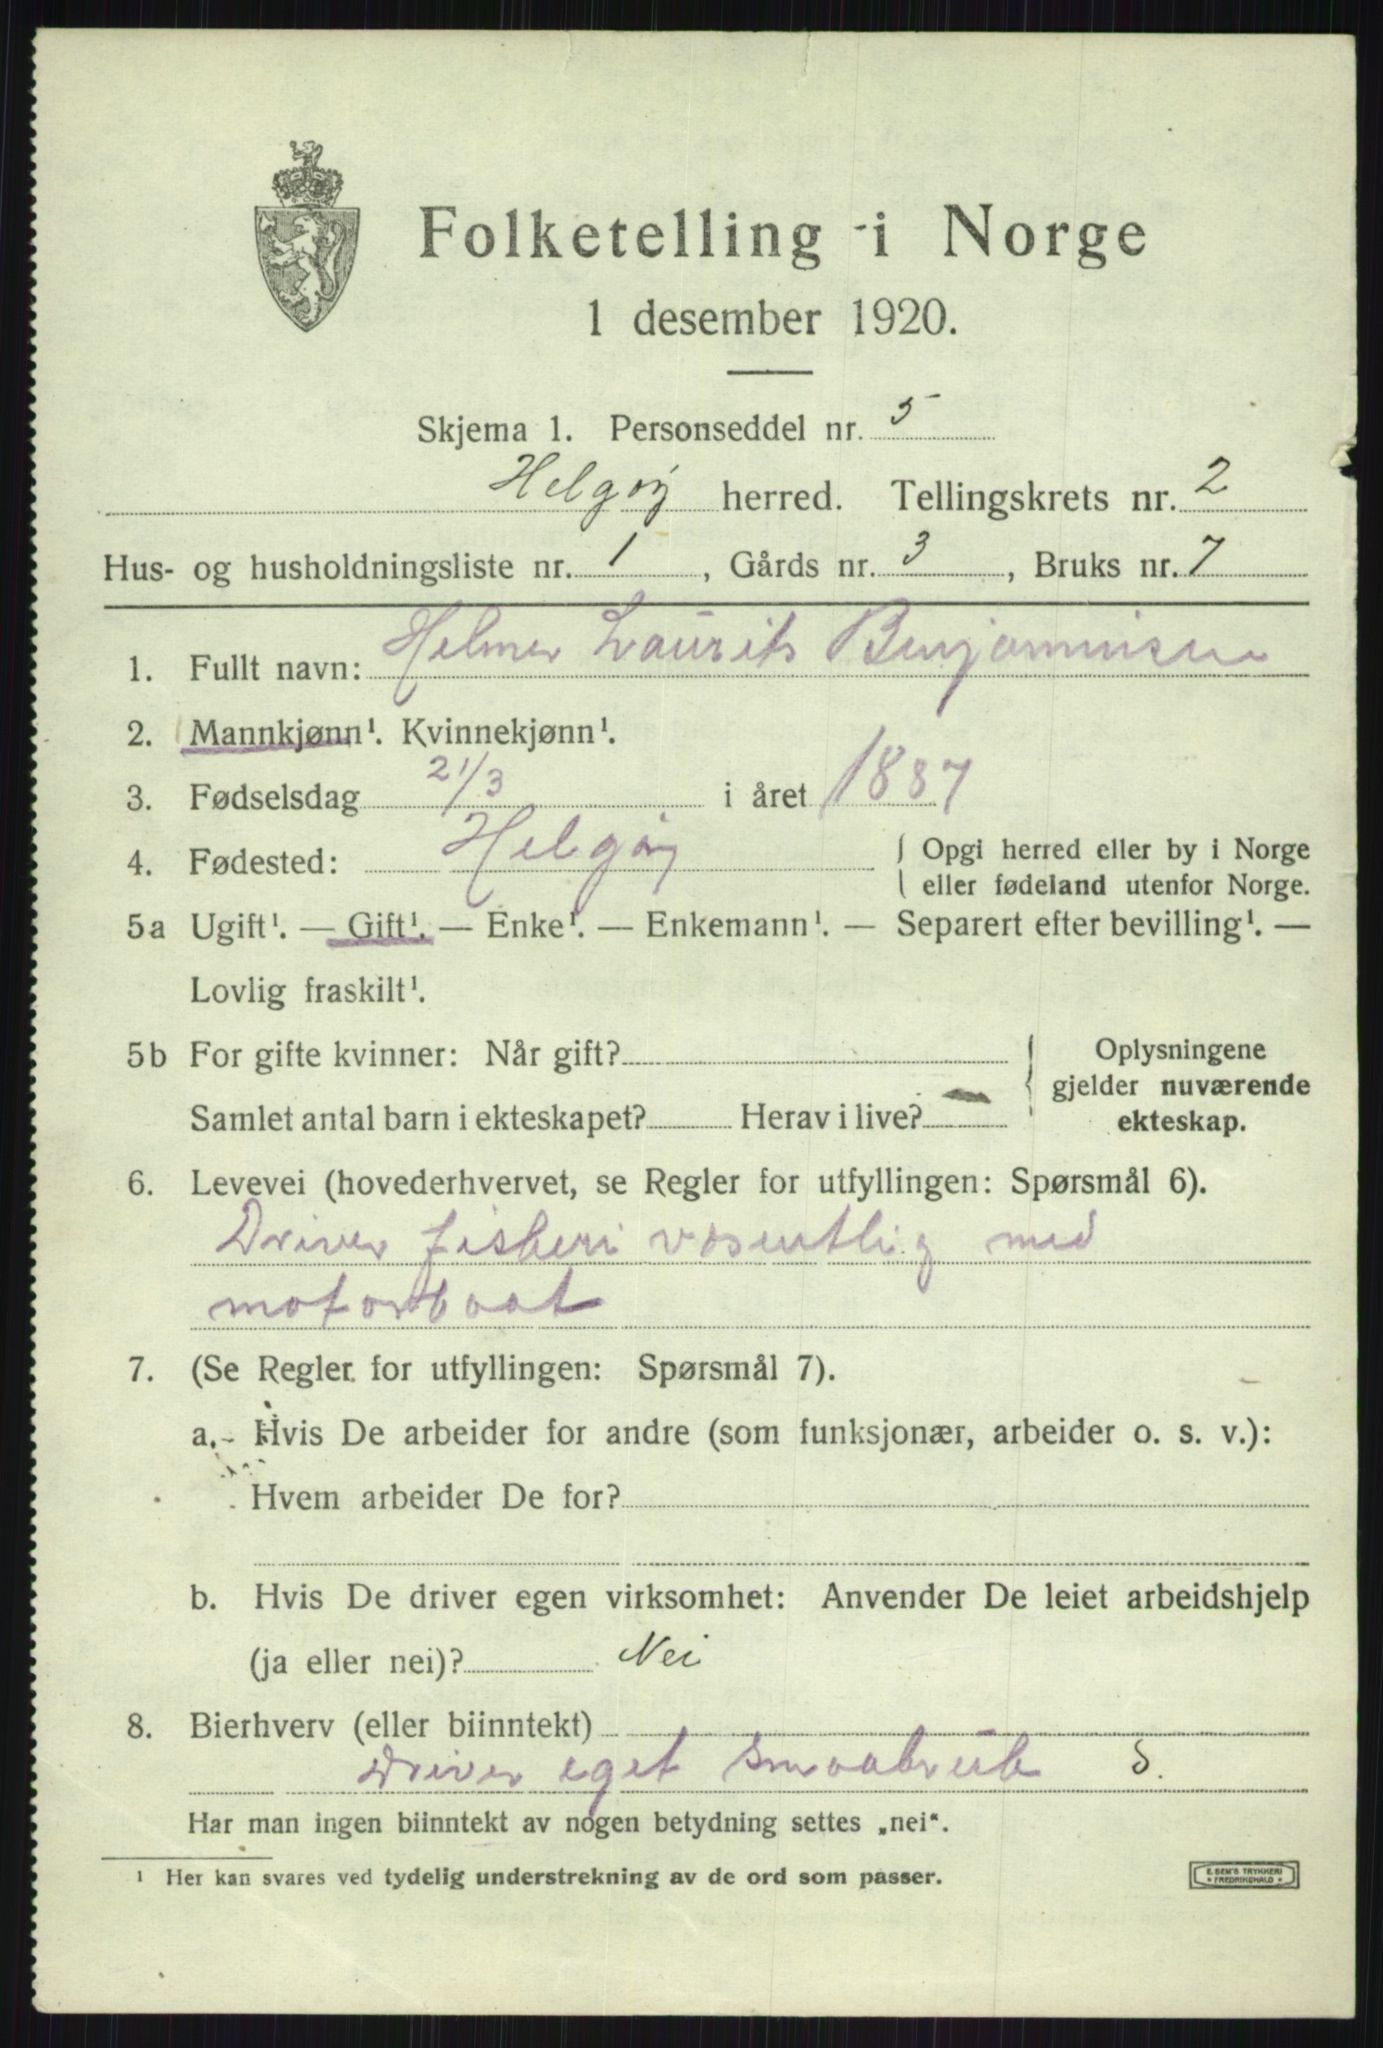 Folketelling i Norge
1 desember 1920.
Skjema 1. Personseddel nr. 5
Helgøy herred. Tellingskrets nr. 2
Hus- og husholdningsliste nr. 1, Gårds nr. 3, Bruks nr. 7
1. Fullt navn: Helmer Laurits Benjaminsen
2. Mannkjønn¹. Kvinnekjønn¹.
3. Fødselsdag 21/3 i året 1887
4. Fødested: Helgøy { Opgi herred eller by i Norge
eller fødeland utenfor Norge.
5a Ugift¹. — Gift¹. — Enke¹. — Enkemann¹. — Separert efter bevilling¹. —
Lovlig fraskilt¹.
5b For gifte kvinner: Når gift?
Samlet antal barn i ekteskapet? Herav i live?
Oplysningene
gjelder nuværende
ekteskap.
6. Levevei (hovederhvervet, se Regler for utfyllingen: Spørsmål 6).
Driver fiskeri vesentlig med
motorbaat
7. (Se Regler for utfyllingen: Spørsmål 7).
a. Hvis De arbeider for andre (som funksjonær, arbeider o. s. v.):
Hvem arbeider De for?
b. Hvis De driver egen virksomhet: Anvender De leiet arbeidshjelp
(ja eller nei)? Nei
8. Bierhverv (eller biinntekt)
Driver eget smaabruk S.
Har man ingen biinntekt av nogen betydning settes „nei“.
¹ Her kan svares ved tydelig understrekning av de ord som passer.
E. SEM'S TRYKKERI
* FREDRIKSHALD *